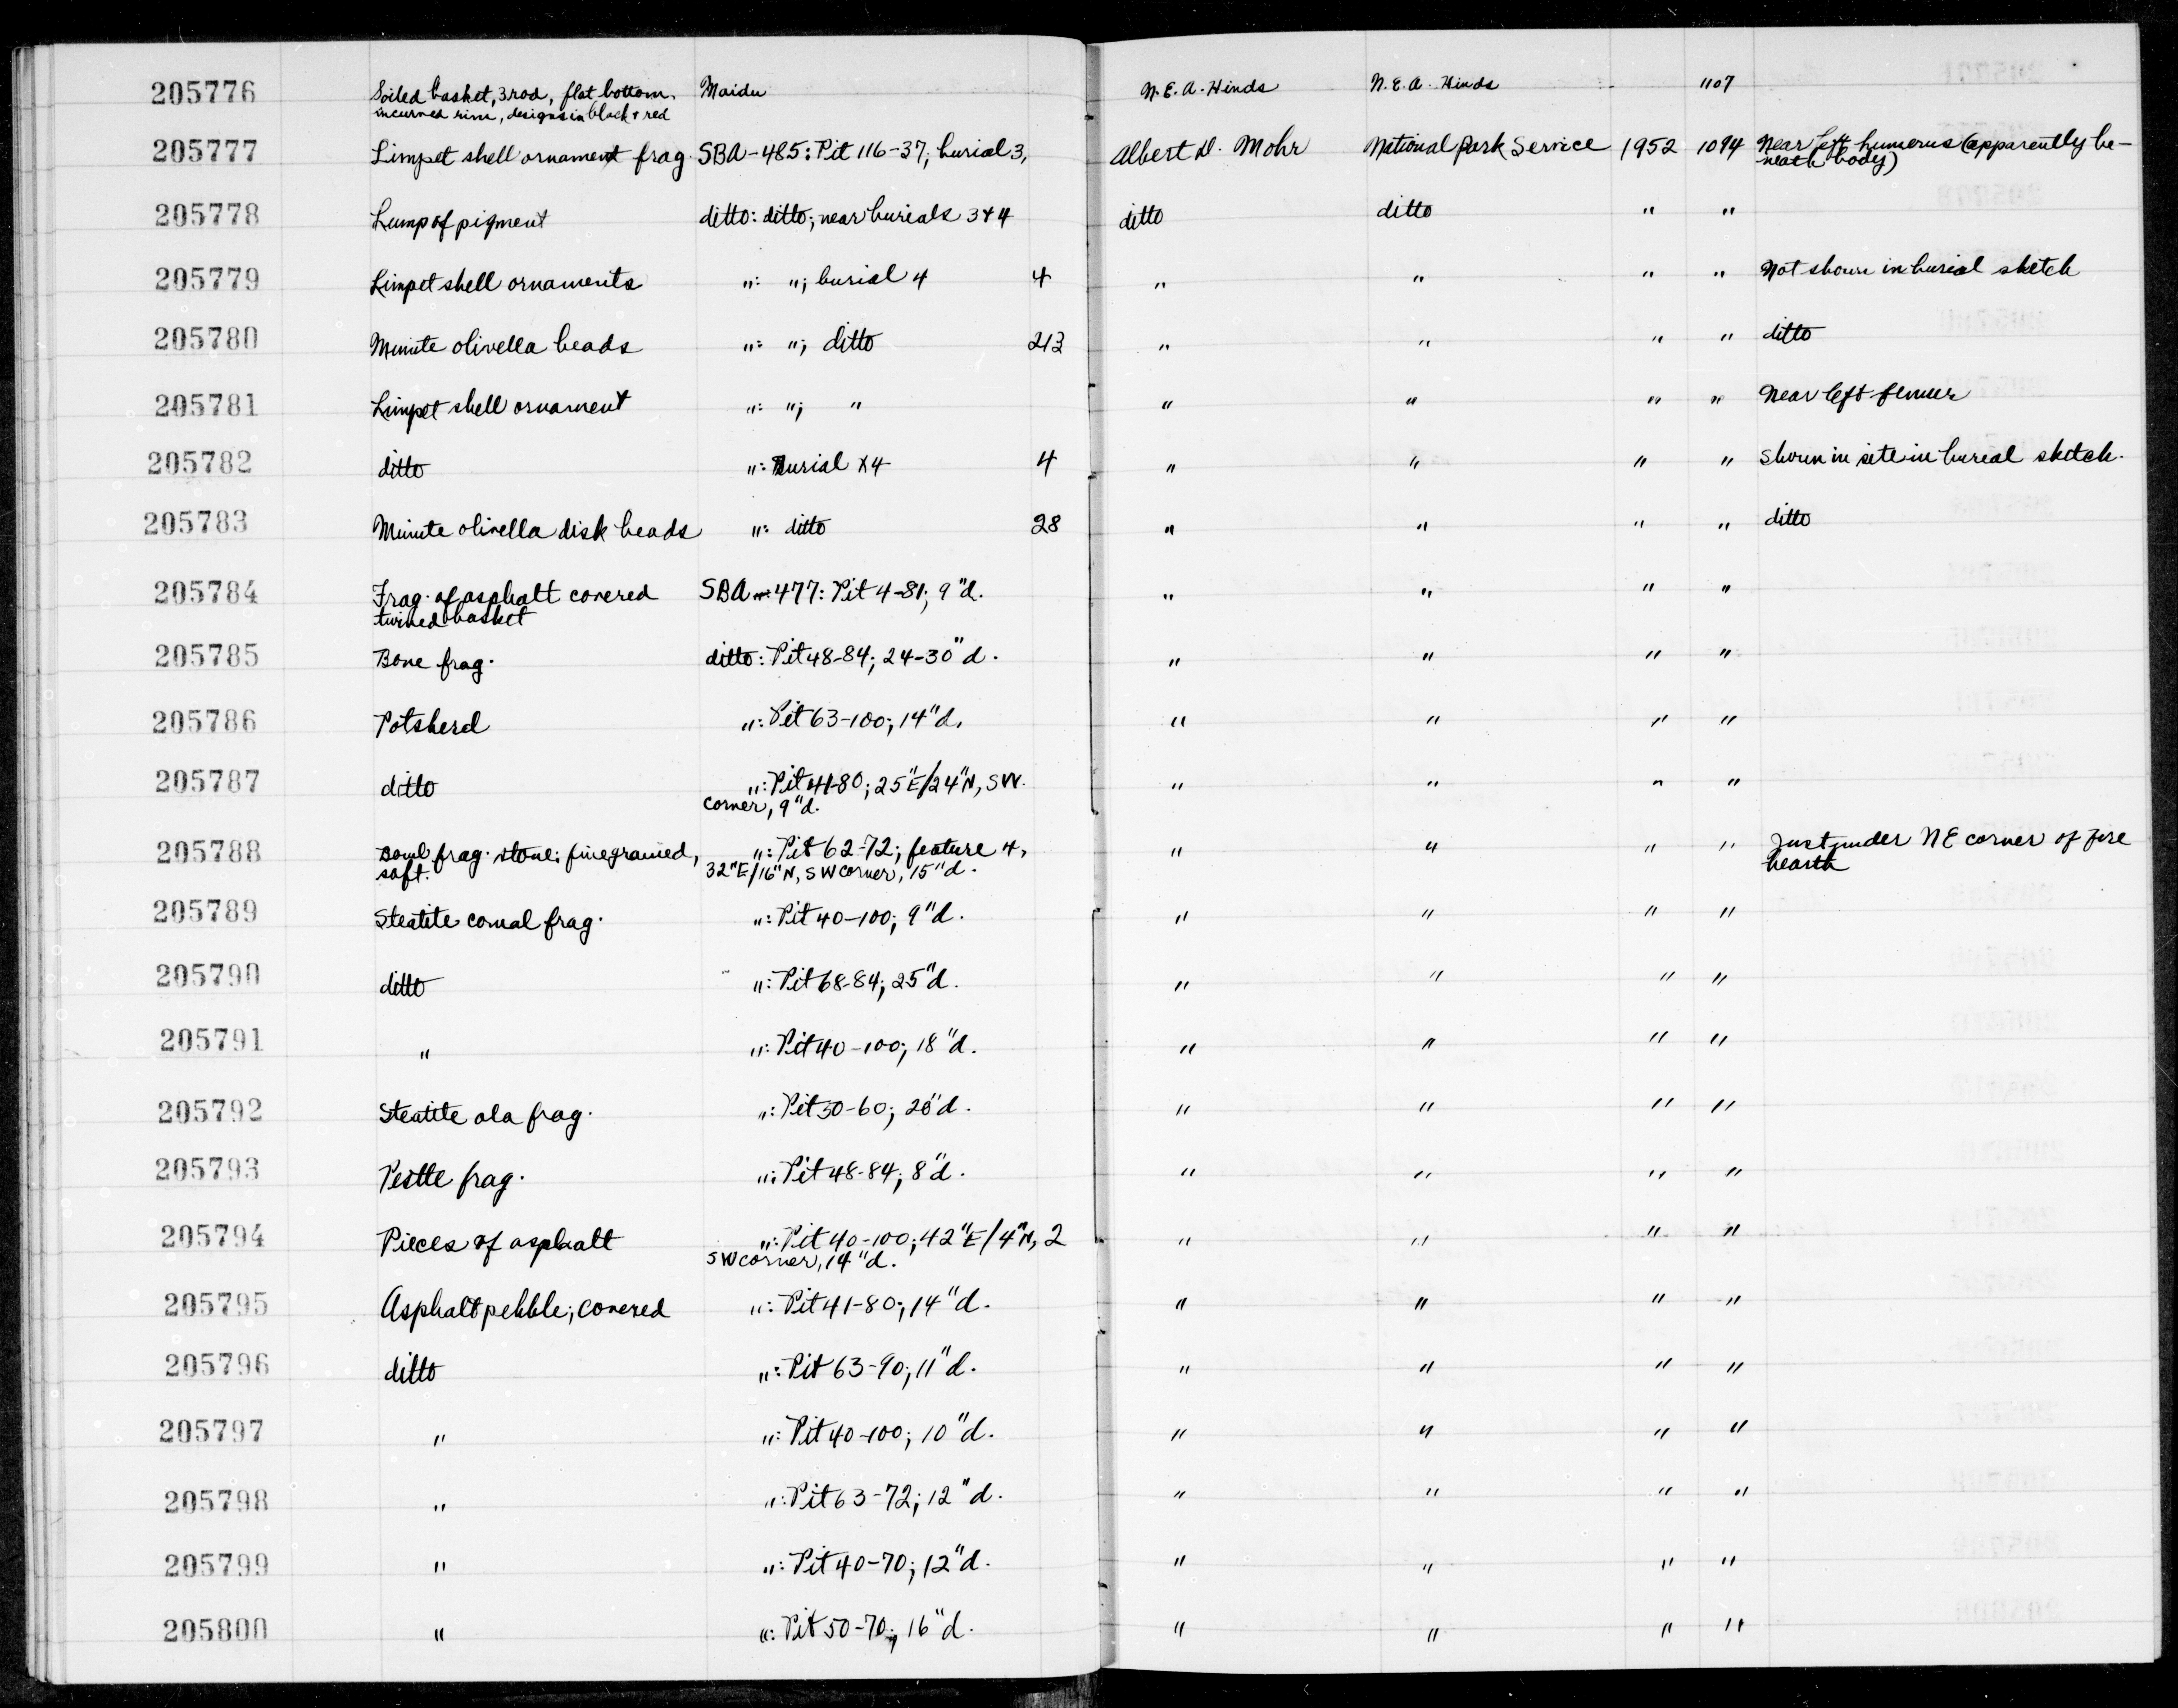 205776 Soiled basket, 3 rod, flat bottom, Maidu N.E.A. Hinds N.E.A. Hinds 1107
incurved rim, designs in black + red
205777 Limpet shell ornament frag. SBA-485: Pit 116-37, burial 3, Albert D. Mohr National Park Service 1952 1094 Near left humerus (apparently be-
neath body)
205778 Lump of pigment ditto: ditto; near burials 3+4 ditto ditto " "
205779 Limpet shell ornaments ": "; burial 4 4 " " " " Not shown in burial sketch
205780 Minute olivella beads ": "; ditto 213 " " " " ditto
205781 Limpet shell ornament ": "; " " " " " Near left femur
205782 ditto ": Burial X4 4 " " " " Shown in site in burial sketch.
205783 Minute olivella disk beads ": ditto 28 " " " " ditto
205784 Frag. of asphalt covered SBA-477: Pit 4-81; 9"d. " " " "
twined basket
205785 Bone frag. ditto: Pit 48-84; 24-30"d. " " " "
205786 Potsherd ": Pit 63-100; 14"d. " " " "
205787 ditto ": Pit 41-80; 25"E/24"N, SW " " " "
corner, 9"d.
205788 Bowl frag. stone; fine grained, ": Pit 62-72; feature 4, " " " " Just under NE corner of fire
soft. 32"E/16"N, SW corner, 15"d. hearth
205789 Steatite comal frag. ": Pit 40-100; 9"d. " " " "
205790 ditto ": Pit 68-84; 25"d. " " " "
205791 " ": Pit 40-100; 18"d. " " " "
205792 Steatite ola frag. ": Pit 50-60; 28"d. " " " "
205793 Pestle frag. ": Pit 48-84; 8"d. " " " "
205794 Pieces of asphalt ": Pit 40-100; 42"E/4"N, 2 " " " "
SW corner, 14"d.
205795 Asphalt pebble; covered ": Pit 41-80; 14"d. " " " "
205796 ditto ": Pit 63-90; 11"d. " " " "
205797 " ": Pit 40-100; 10"d. " " " "
205798 " ": Pit 63-72; 12"d. " " " "
205799 " ": Pit 40-70; 12"d. " " " "
205800 " ": Pit 50-70; 16"d. " " " "